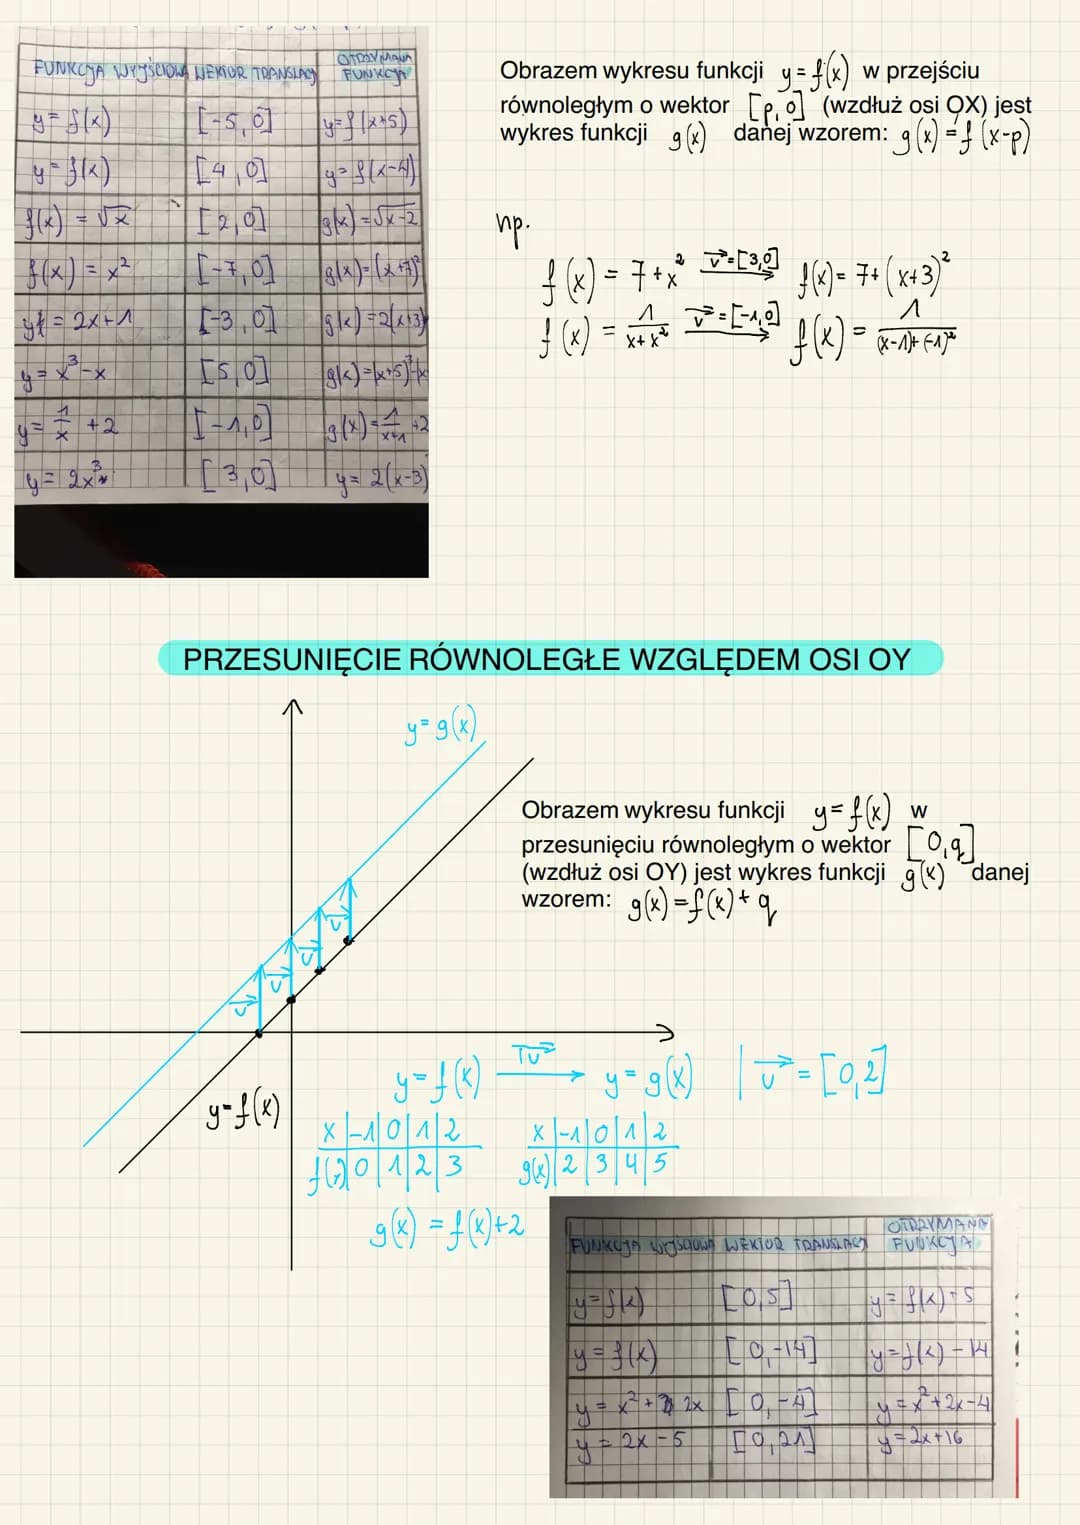 FUNKCJA WYJŚCIOWA WEKTOR TRANSLACJI OTRZYMANA FUNKCJA
y = f(x) [-5,0] y=f(x+5)
y = f(x) [4,0] y= f(x-4)
f(x) = √x [2,0] g(x)=√x-2
f(x) = x² [-7,0] g(x)=(x+7)²
y = 2x+1 [-3,0] g(x)=2(x+3)
y = x³-x [5,0] g(x)=(x+5)³-(x
y = 1/x +2 [-1,0] g(x)=1/x+1 +2
y = 2x³ [3,0] y= 2(x-3)
Obrazem wykresu funkcji y = f(x) w przejściu
równoległym o wektor [p,0] (wzdłuż osi OX) jest
wykres funkcji g(x) danej wzorem: g(x) = f(x-p)
np.
f(x) = 7+x² v=[3,0] f(x)= 7+(x+3)²
f(x) = 1/x+x² v=[-1,0] f(x) = 1/(x-1)+(-1)²
PRZESUNIĘCIE RÓWNOLEGŁE WZGLĘDEM OSI OY
y=g(x)
Obrazem wykresu funkcji y=f(x) w
przesunięciu równoległym o wektor [0,q]
(wzdłuż osi OY) jest wykres funkcji g(x) danej
wzorem: g(x)=f(x)+q
v v v v
y=f(x)
y=f(x) Tv y=g(x) | v=[0,2]
x |-1|0|1|2
f(x)|0|1|2|3
x |-1|0|1|2
g(x)|2|3|4|5
g(x) = f(x)+2
FUNKCJA WYJŚCIOWA WEKTOR TRANSLACJI OTRZYMANA FUNKCJA
y=f(x) [0,5] y= f(x)+5
y=f(x) [0,-14] y=f(x)-14
y= x²+ 2x [0,-4] y=x²+2x-4
y= 2x-5 [0,21] y=2x+16